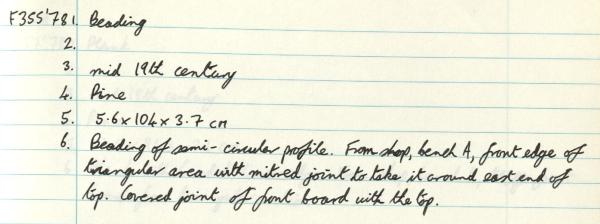 F355'78 1. Beading
2.
3. mid 19th century
4. Pine
5. 5.6 x 104 x 3.7 cm
6. Beading of semi-circular profile. From shop, bench A, front edge of
triangular area with mitred joint to take it around east end of
top. Covered joint of front board with the top.